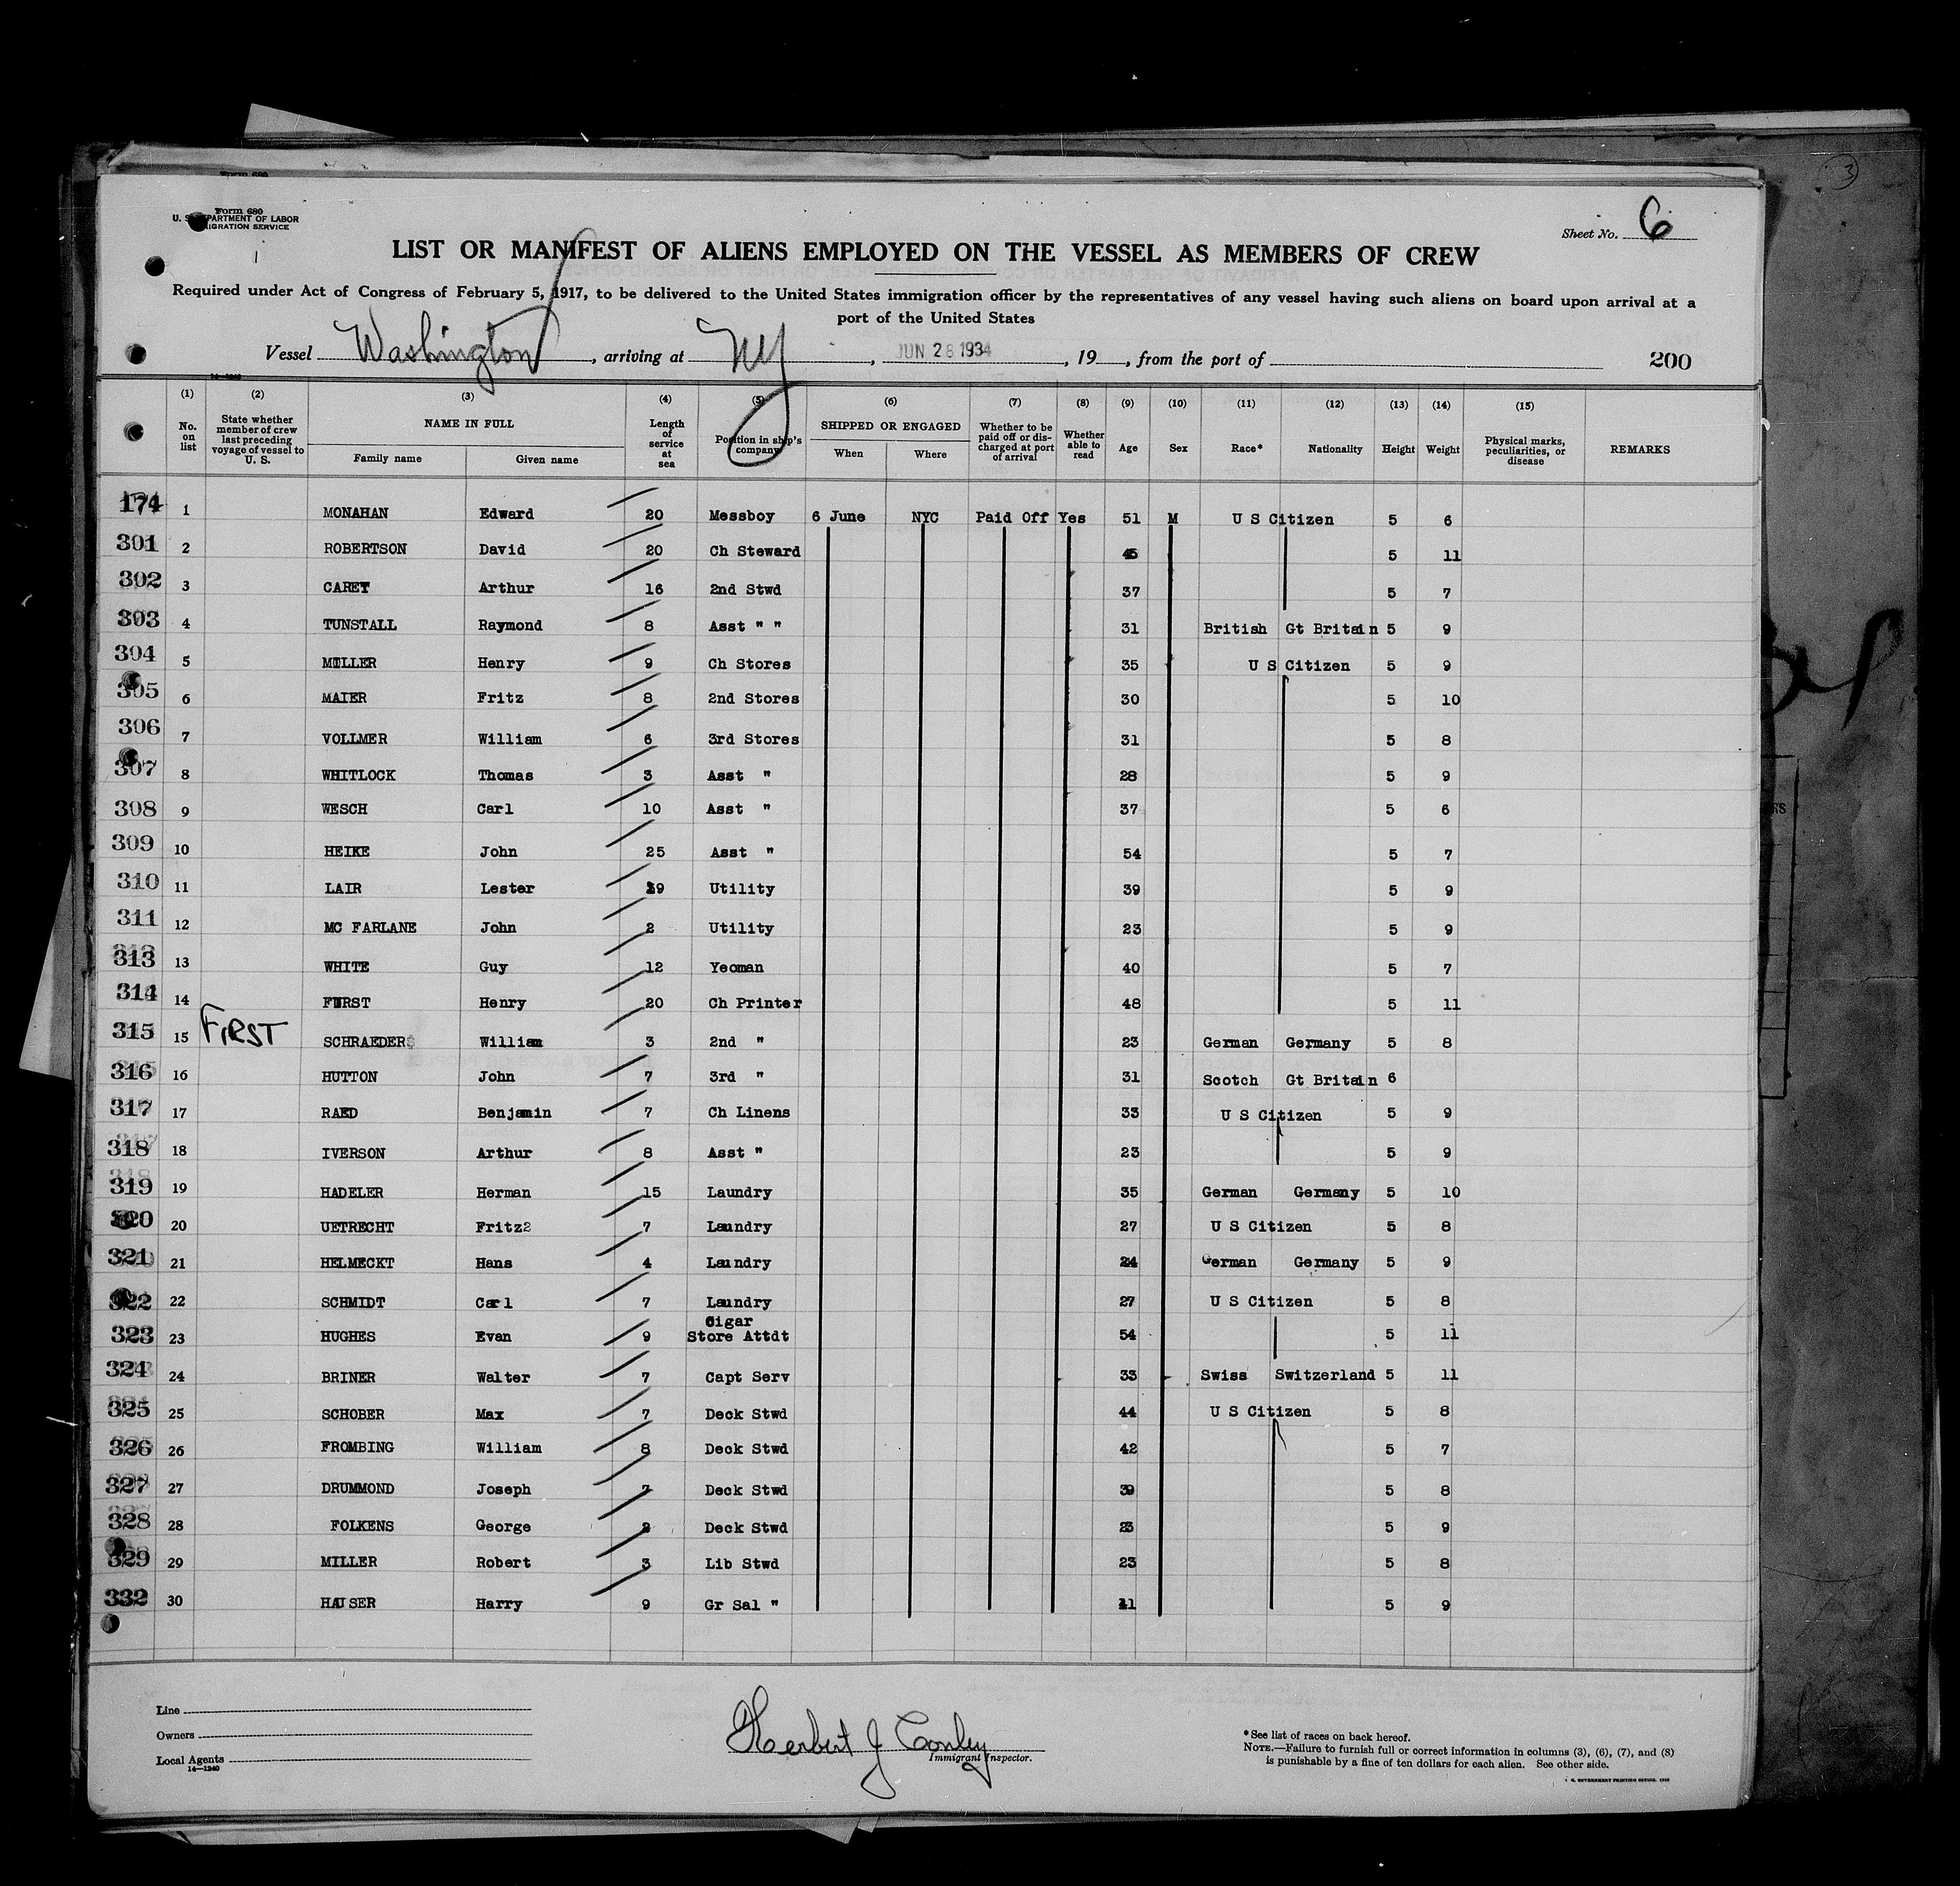 Form 680
U. S. DEPARTMENT OF LABOR
IMMIGRATION SERVICE
Sheet No. 6
LIST OR MANIFEST OF ALIENS EMPLOYED ON THE VESSEL AS MEMBERS OF CREW
Required under Act of Congress of February 5, 1917, to be delivered to the United States immigration officer by the representatives of any vessel having such aliens on board upon arrival at a
port of the United States
Vessel Washington, arriving at NY, JUN 28 1934, 19 , from the port of 200
14-1240
(1) No. on list
(2) State whether member of crew last preceding voyage of vessel to U. S.
(3) NAME IN FULL Family name Given name
(4) Length of service at sea
(5) Position in ship's company
(6) SHIPPED OR ENGAGED When Where
(7) Whether to be paid off or discharged at port of arrival
(8) Whether able to read
(9) Age
(10) Sex
(11) Race*
(12) Nationality
(13) Height
(14) Weight
(15) Physical marks, peculiarities, or disease
REMARKS
174 1 MONAHAN Edward 20 Messboy 6 June NYC Paid Off Yes 51 M U S Citizen 5 6
301 2 ROBERTSON David 20 Ch Steward 45 5 11
302 3 CARET Arthur 16 2nd Stwd 37 5 7
303 4 TUNSTALL Raymond 8 Asst " " 31 British Gt Britain 5 9
304 5 MILLER Henry 9 Ch Stores 35 U S Citizen 5 9
305 6 MAIER Fritz 8 2nd Stores 30 5 10
306 7 VOLLMER William 6 3rd Stores 31 5 8
307 8 WHITLOCK Thomas 3 Asst " 28 5 9
308 9 WESCH Carl 10 Asst " 37 5 6
309 10 HEIKE John 25 Asst " 54 5 7
310 11 LAIR Lester 19 Utility 39 5 9
311 12 MC FARLANE John 2 Utility 23 5 9
313 13 WHITE Guy 12 Yeoman 40 5 7
314 14 FURST Henry 20 Ch Printer 48 5 11
315 15 FIRST SCHRAEDER William 3 2nd " 23 German Germany 5 8
316 16 HUTTON John 7 3rd " 31 Scotch Gt Britain 6
317 17 RAED Benjamin 7 Ch Linens 33 U S Citizen 5 9
318 18 IVERSON Arthur 8 Asst " 23 5 9
319 19 HADELER Herman 15 Laundry 35 German Germany 5 10
320 20 UETRECHT Fritz2 7 Laundry 27 U S Citizen 5 8
321 21 HELMECKT Hans 4 Laundry 24 German Germany 5 9
322 22 SCHMIDT Carl 7 Laundry 27 U S Citizen 5 8
323 23 HUGHES Evan 9 Cigar Store Attdt 54 5 11
324 24 BRINER Walter 7 Capt Serv 33 Swiss Switzerland 5 11
325 25 SCHOBER Max 7 Deck Stwd 44 U S Citizen 5 8
326 26 FROMBING William 8 Deck Stwd 42 5 7
327 27 DRUMMOND Joseph 7 Deck Stwd 39 5 8
328 28 FOLKENS George 2 Deck Stwd 23 5 9
329 29 MILLER Robert 3 Lib Stwd 23 5 8
332 30 HAUSER Harry 9 Gr Sal " 41 5 9
Line
Owners
Local Agents
14—1240
Herbert J Conley
Immigrant Inspector.
* See list of races on back hereof.
NOTE.—Failure to furnish full or correct information in columns (3), (6), (7), and (8)
is punishable by a fine of ten dollars for each alien. See other side.